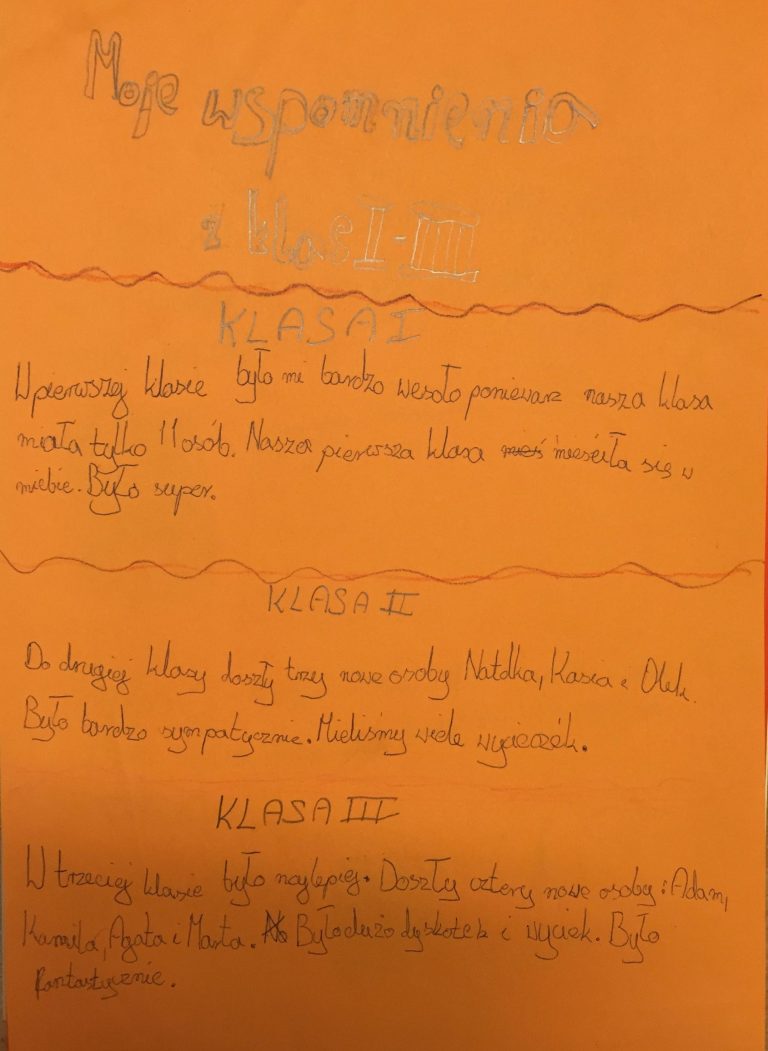 Moje wspomnienia
z klas I-III
KLASA I
W pierwszej klasie było mi bardzo wesoło poniewarz nasza klasa
miała tylko 11 osób. Nasza pierwsza klasa mieś mieściła się w
niebie. Było super.
KLASA II
Do drugiej klasy doszły trzy nowe osoby Natalka, Kasia i Olek.
Było bardzo sympatycznie. Mieliśmy wiele wycieczek.
KLASA III
W trzeciej klasie było najlepiej. Doszły cztery nowe osoby: Adam,
Kamila, Agata i Marta. Było dużo dyskotek i wyciek. Było
fantastycznie.